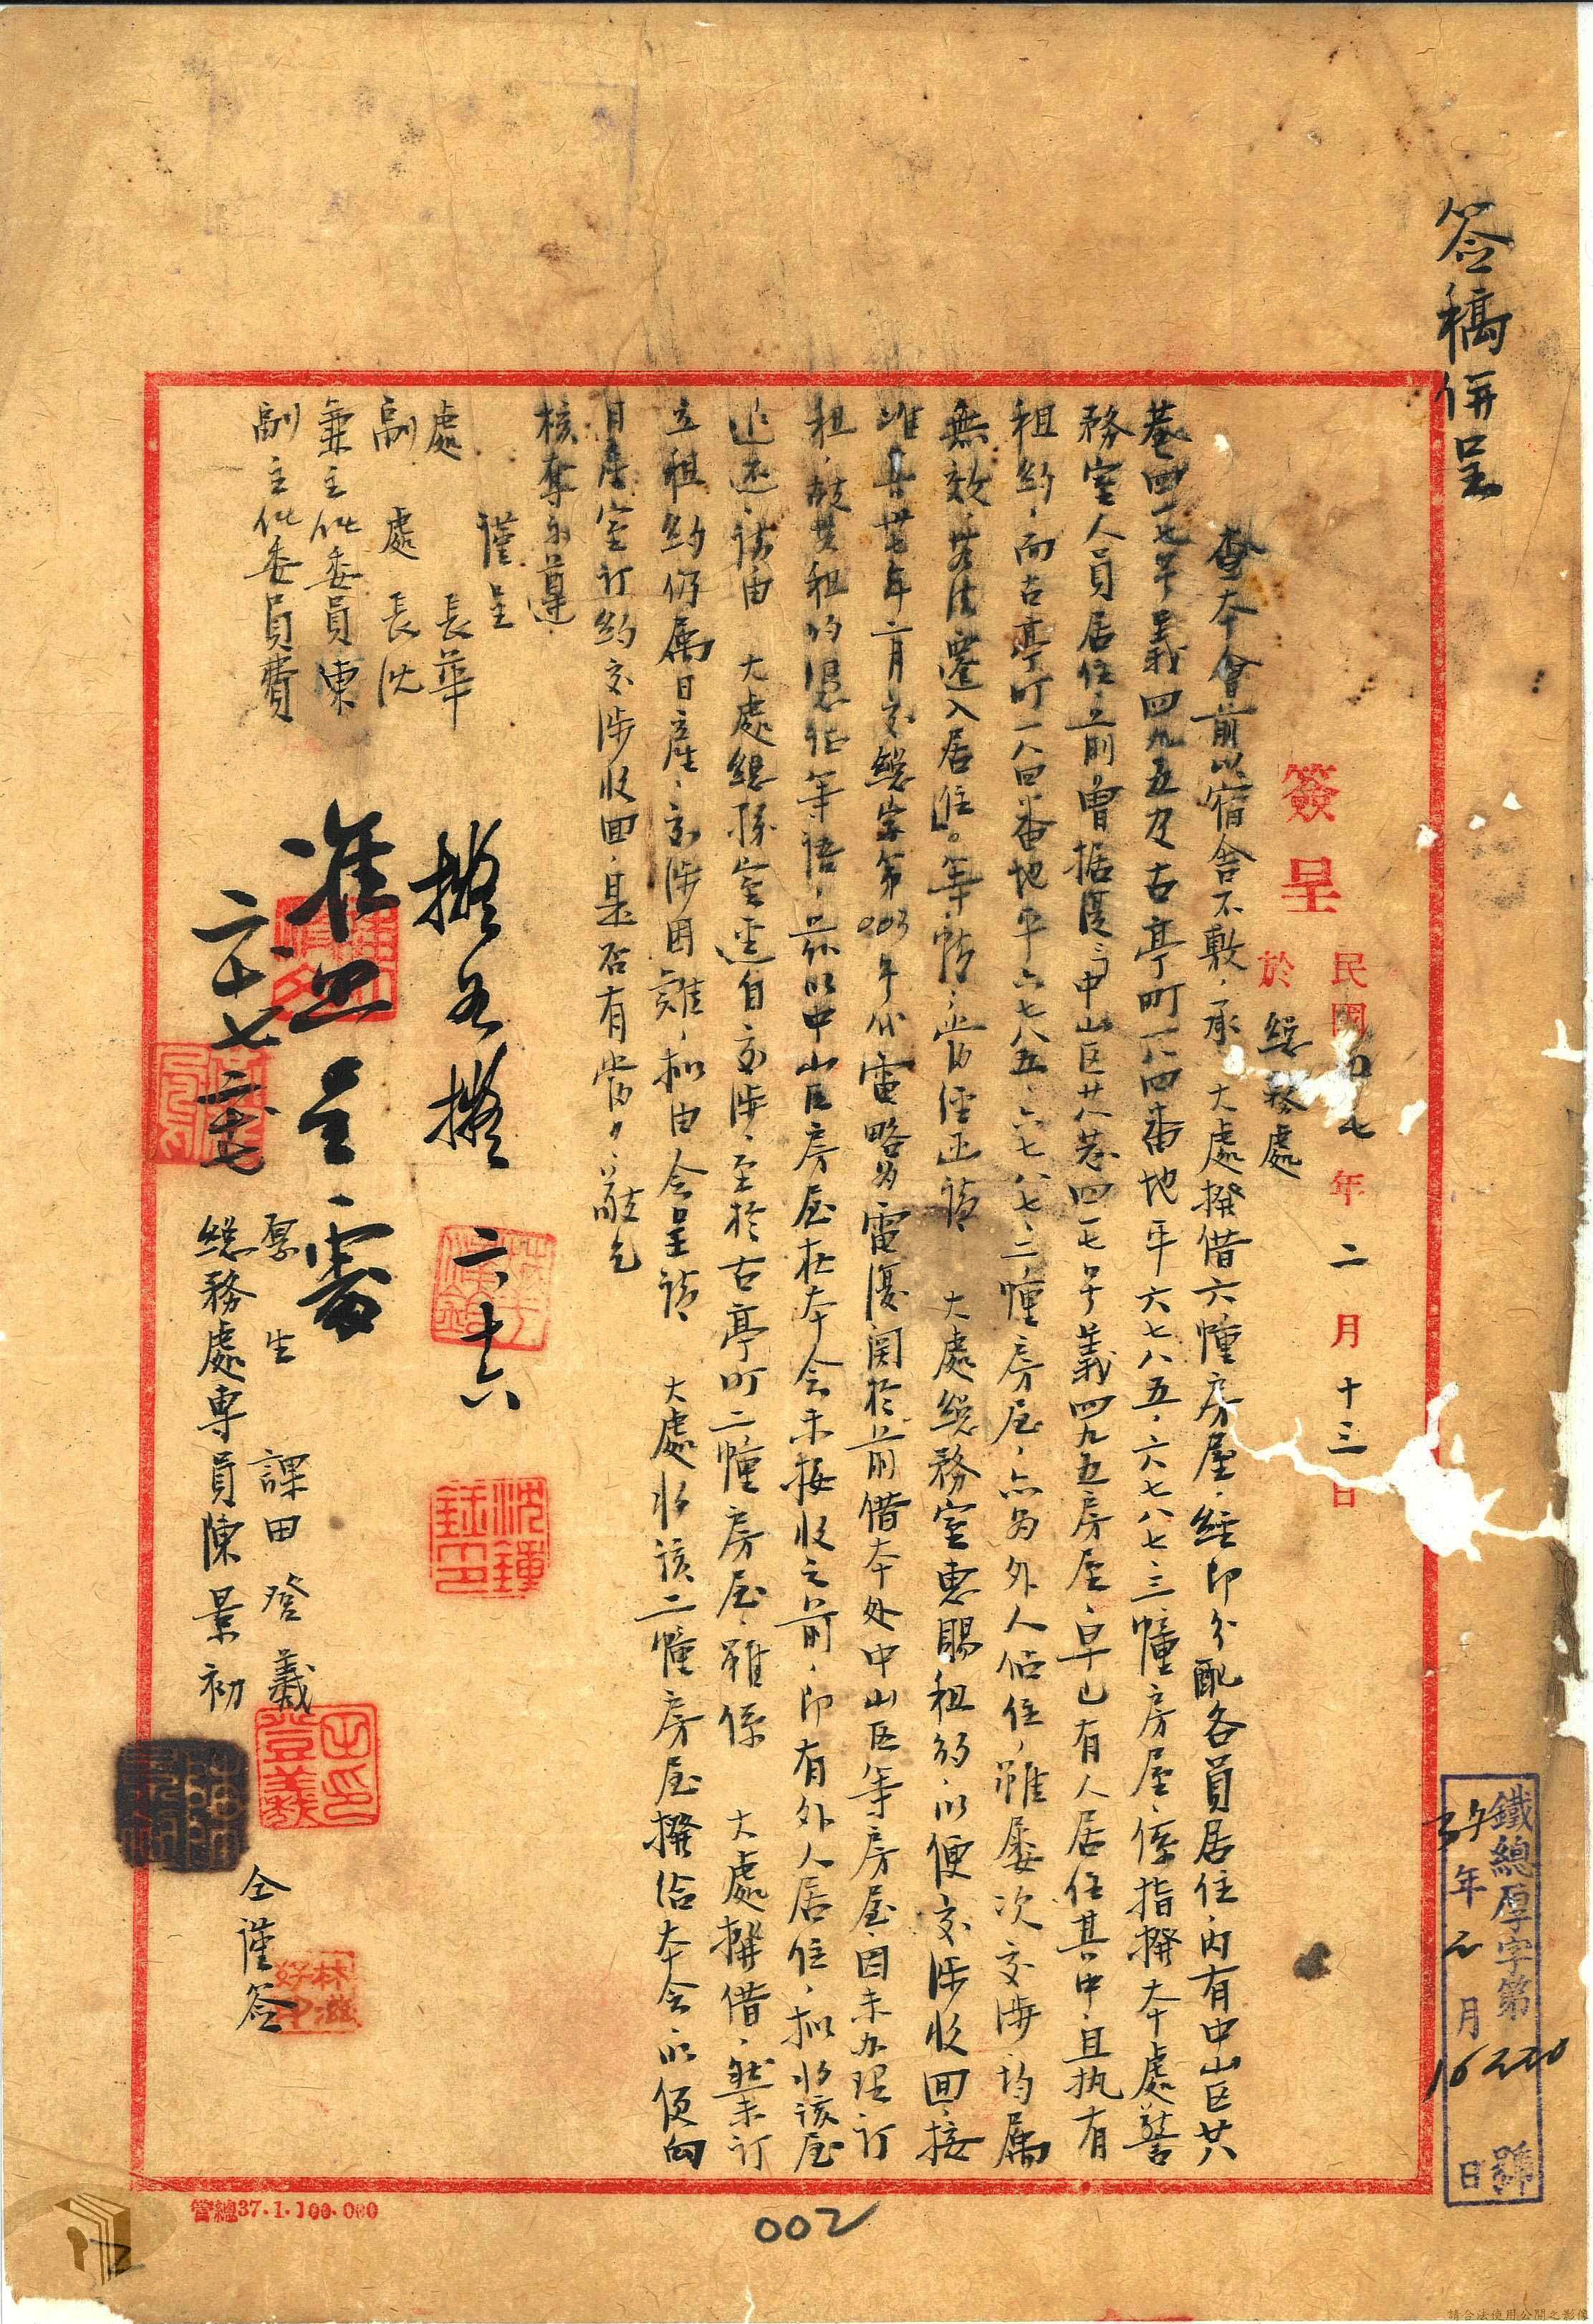 簽稿併呈
簽呈
民國卅七年二月十三日
於總務處
查本會前以宿舍不敷，承　大處撥借六幢房屋，經即分配各員居住，內有中山區廿八
巷四一七号義四九五及古亭町一八四番地平六七八五、六七八七三幢房屋，係指撥本處警
務室人員居住，前曾据復：「中山区廿八巷四七号義四九五房屋，早已有人居住其中，且执有
租約，而古亭町一八四番地平六七八五、六七八七、二幢房屋，亦為外人佔住，雖屡次交涉，均属
無效，無法遷入居住」。等情，當經函請　大處總務室惠賜租約，以便交涉收回，接
准卅七年二月京總字第003号代電略為電復関於前借本处中山区等房屋，因未办理訂
租，故無租約憑証等語，茲以中山区房屋在本会未接收之前，即有外人居住，拟将該屋
退还，請由　大處總務室逕自交涉，至於古亭町二幢房屋，雖係　大處撥借，然未訂
立租約仍属日產，交涉困難，拟由会呈請　大處将該二幢房屋撥给本会，以便向
日產室訂約交涉收回，是否有當，敬乞
核奪示遵
謹呈
處長華
副處長沈
兼主任委員東
副主任委員費
擬如擬 二十六
准照呈
二十七
課田登義
總務處專員陳景初
仝謹簽
鐵總厚字第220號
37年2月16日
管總37.1.100.000
002